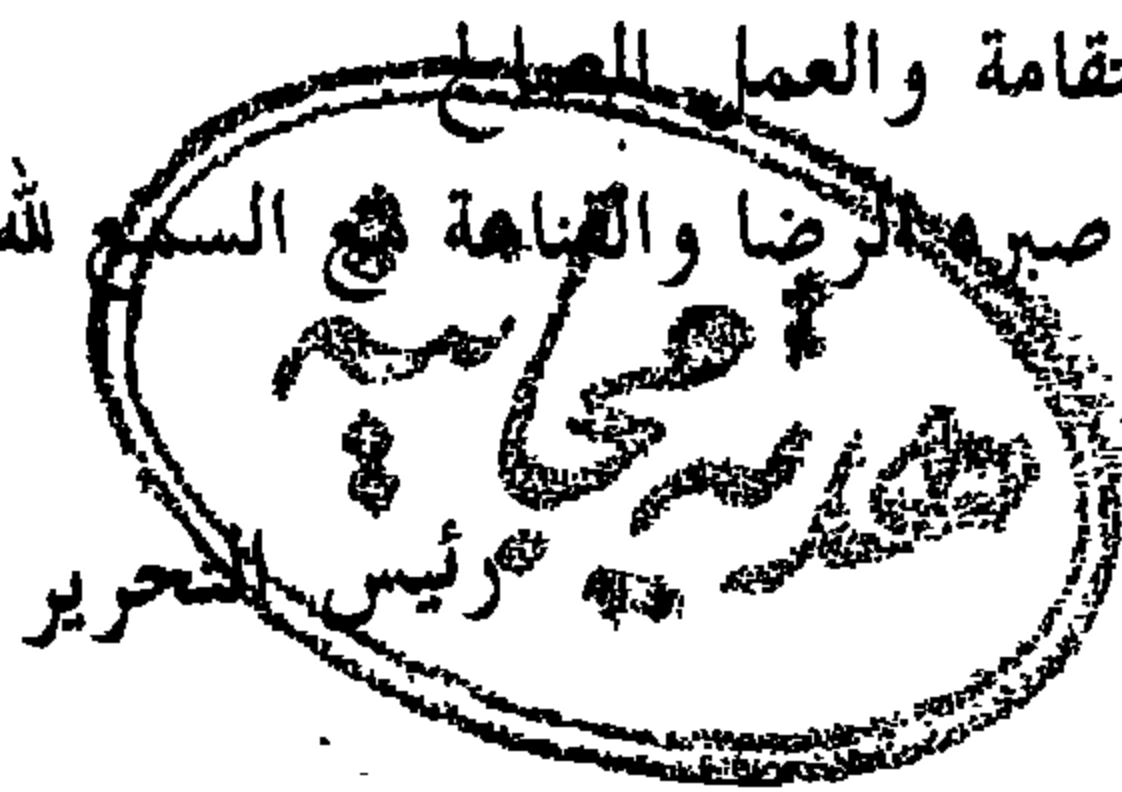 تقامة والعمل الصالح
صبره الرضا والقناعة مع السمع لله
هدية مجانية
رئيس التحرير